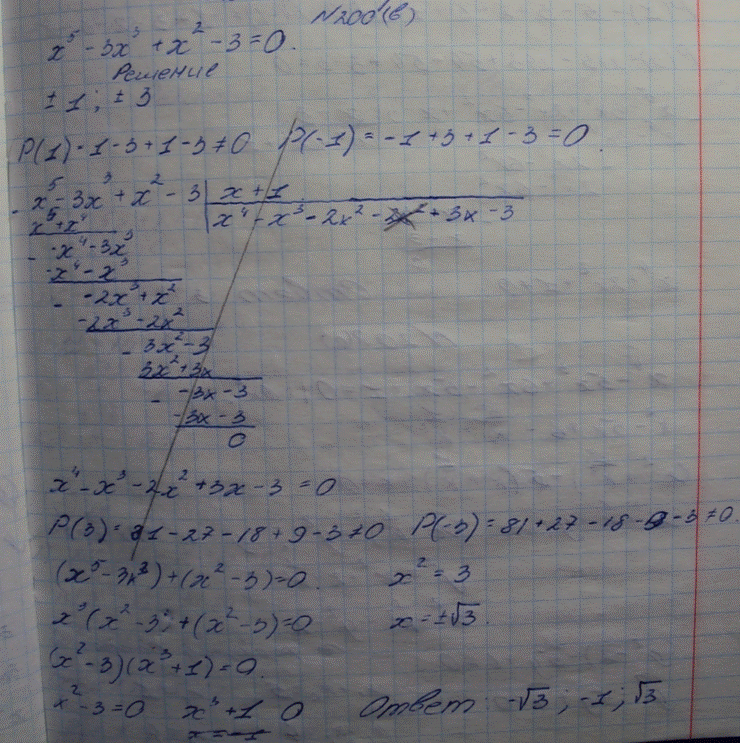 N200(в)
x⁵ - 3x³ + x² - 3 = 0.
Решение
± 1 ; ± 3
P(1) = 1 - 3 + 1 - 3 ≠ 0 P(-1) = -1 + 3 + 1 - 3 = 0
- x⁵ - 3x³ + x² - 3 | x + 1
x⁵ + x⁴ x⁴ - x³ - 2x² + 3x - 3
- -x⁴ - 3x³
-x⁴ - x³
- -2x³ + x²
-2x³ - 2x²
- 3x² - 3
3x² + 3x
- -3x - 3
-3x - 3
0
x⁴ - x³ - 2x² + 3x - 3 = 0
P(3) = 81 - 27 - 18 + 9 - 3 ≠ 0 P(-3) = 81 + 27 - 18 - 9 - 3 ≠ 0.
(x⁵ - 3x³) + (x² - 3) = 0. x² = 3
x³(x² - 3) + (x² - 3) = 0 x = ±√3.
(x² - 3)(x³ + 1) = 0.
x² - 3 = 0 x³ + 1 0 Ответ: -√3 ; -1 ; √3
x = -1